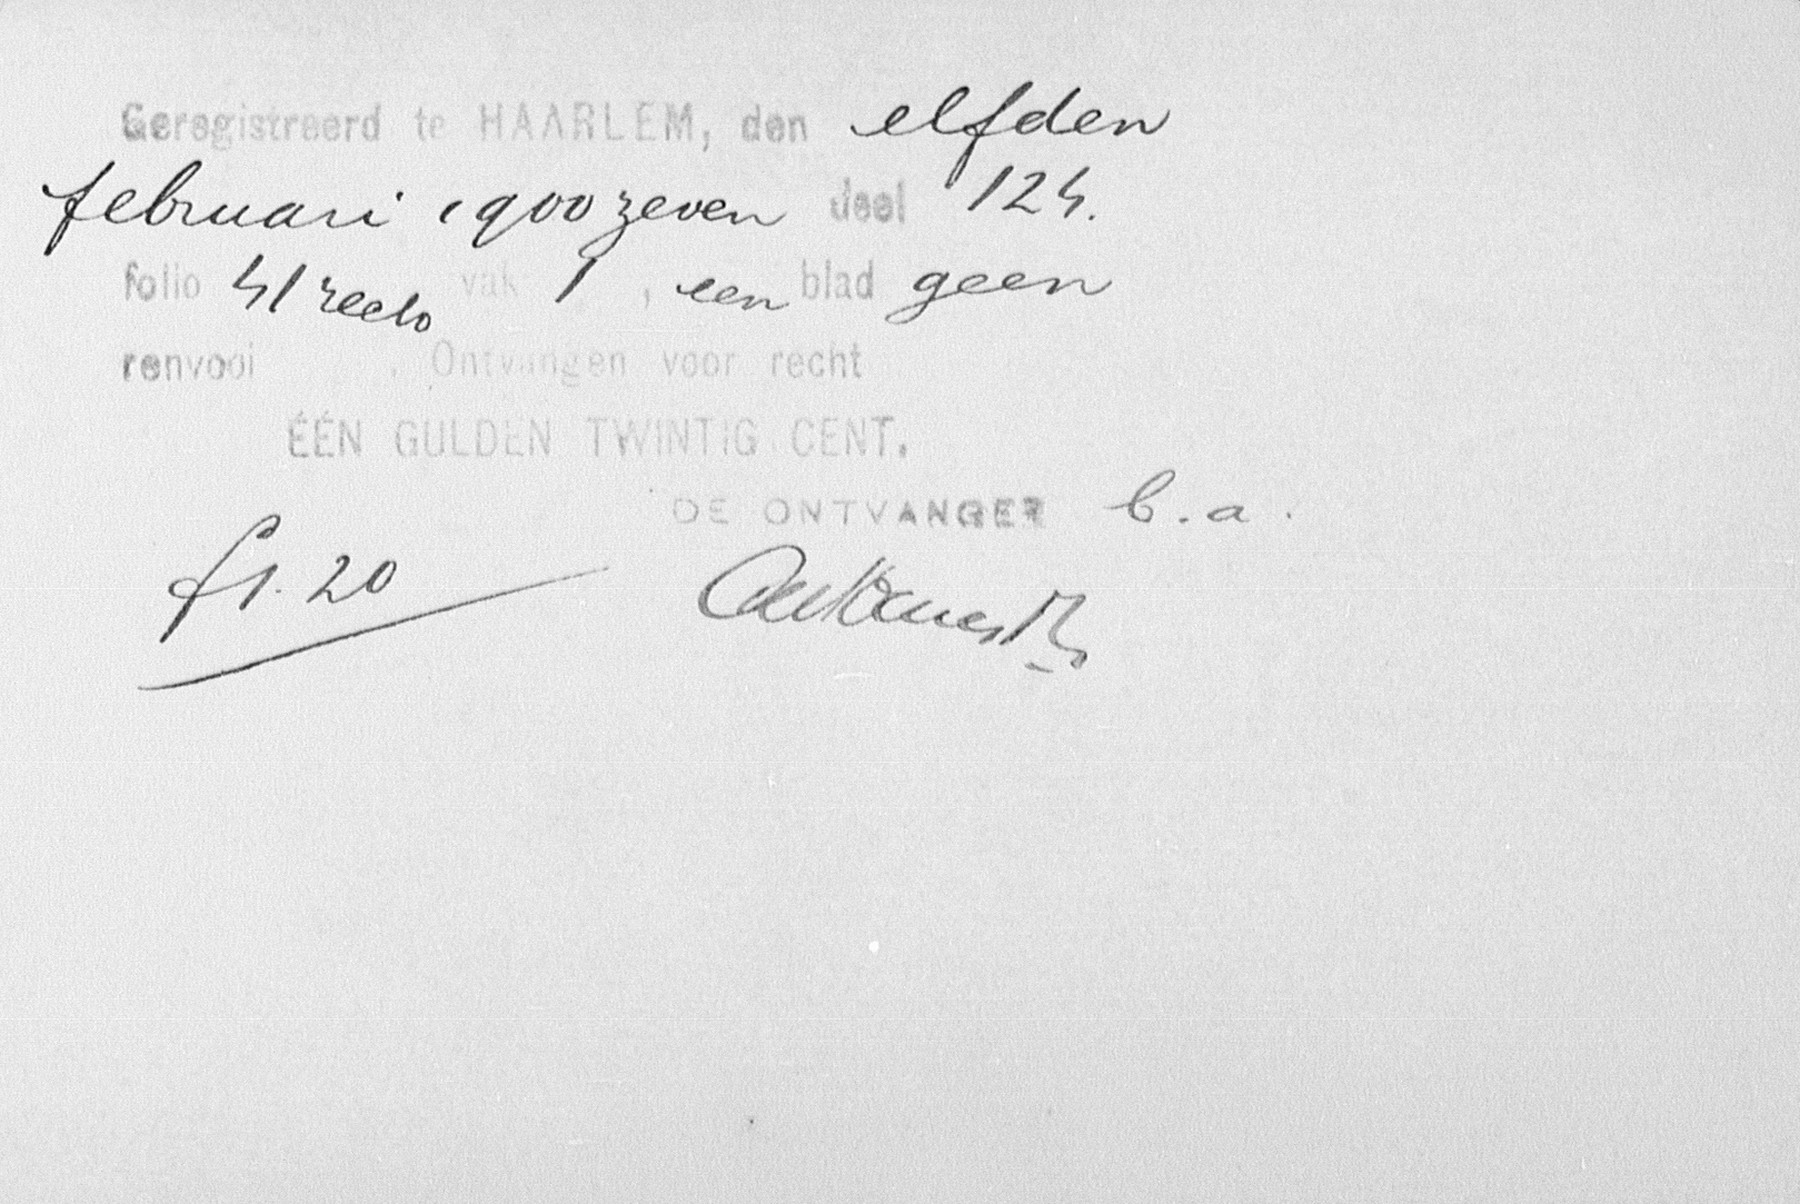 Geregistreerd te HAARLEM, den elfden
februari 1900 zeven deel 124.
folio 41 recto vak 1, een blad geen
renvooi . Ontvangen voor recht
ÉÉN GULDEN TWINTIG CENT.
DE ONTVANGER b.a.
f 1.20